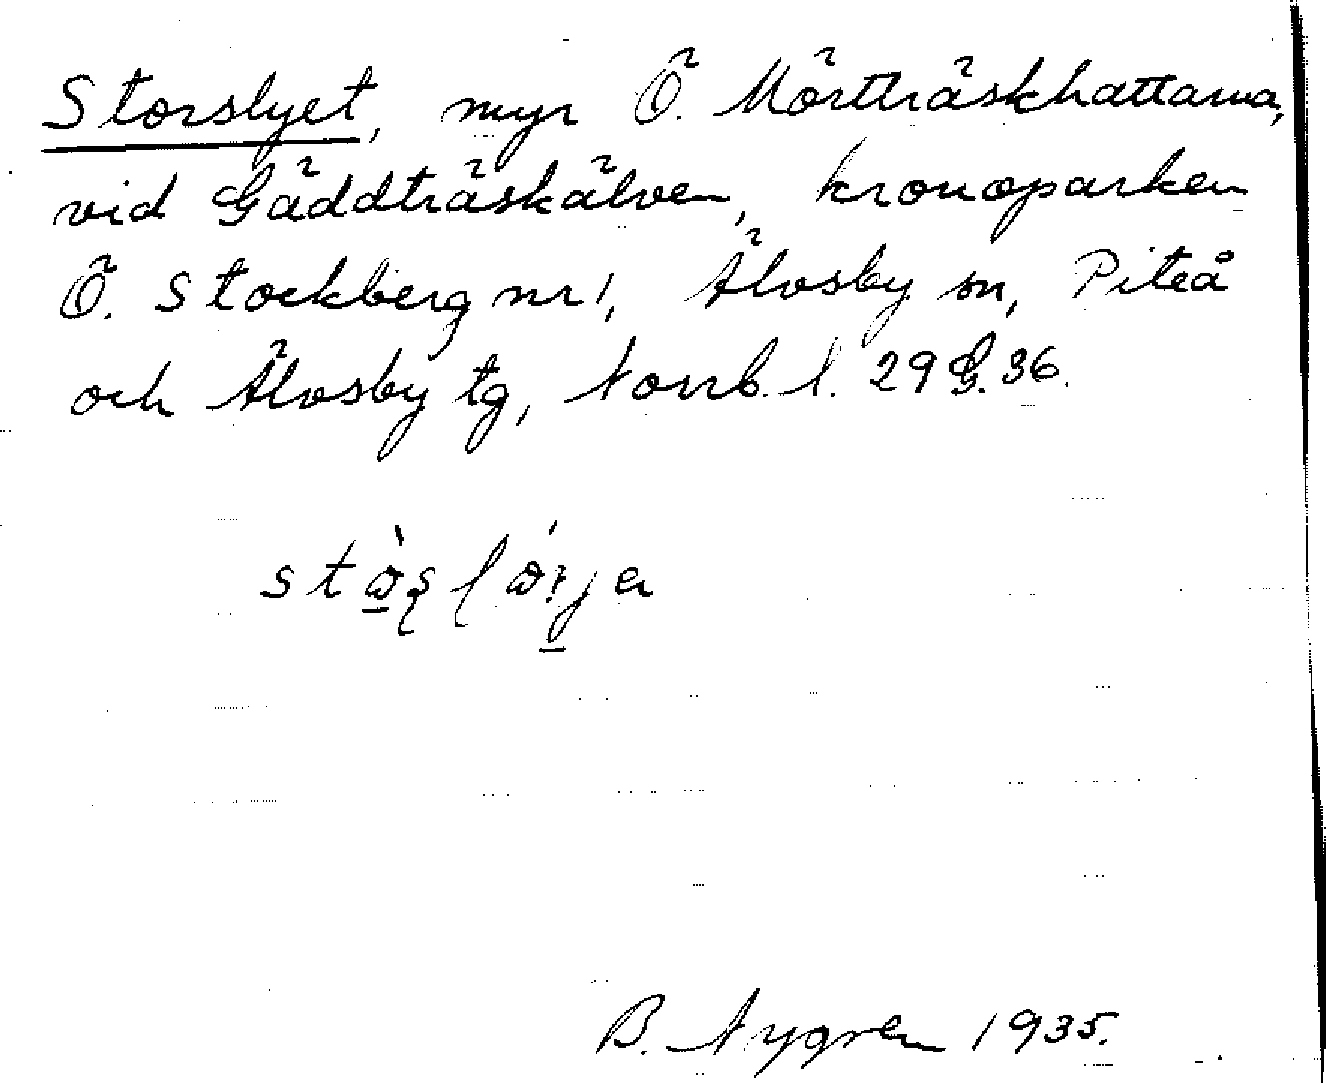 Storslyet, myr Ö. Mörtträskhattarna,
vid Gäddträskälven, kronoparken
Ö. Stockberg nr 1, Älvsby sn, Piteå
och Älvsby tg, Norrb. l. 29 G. 36.
B. Nygren 1935.